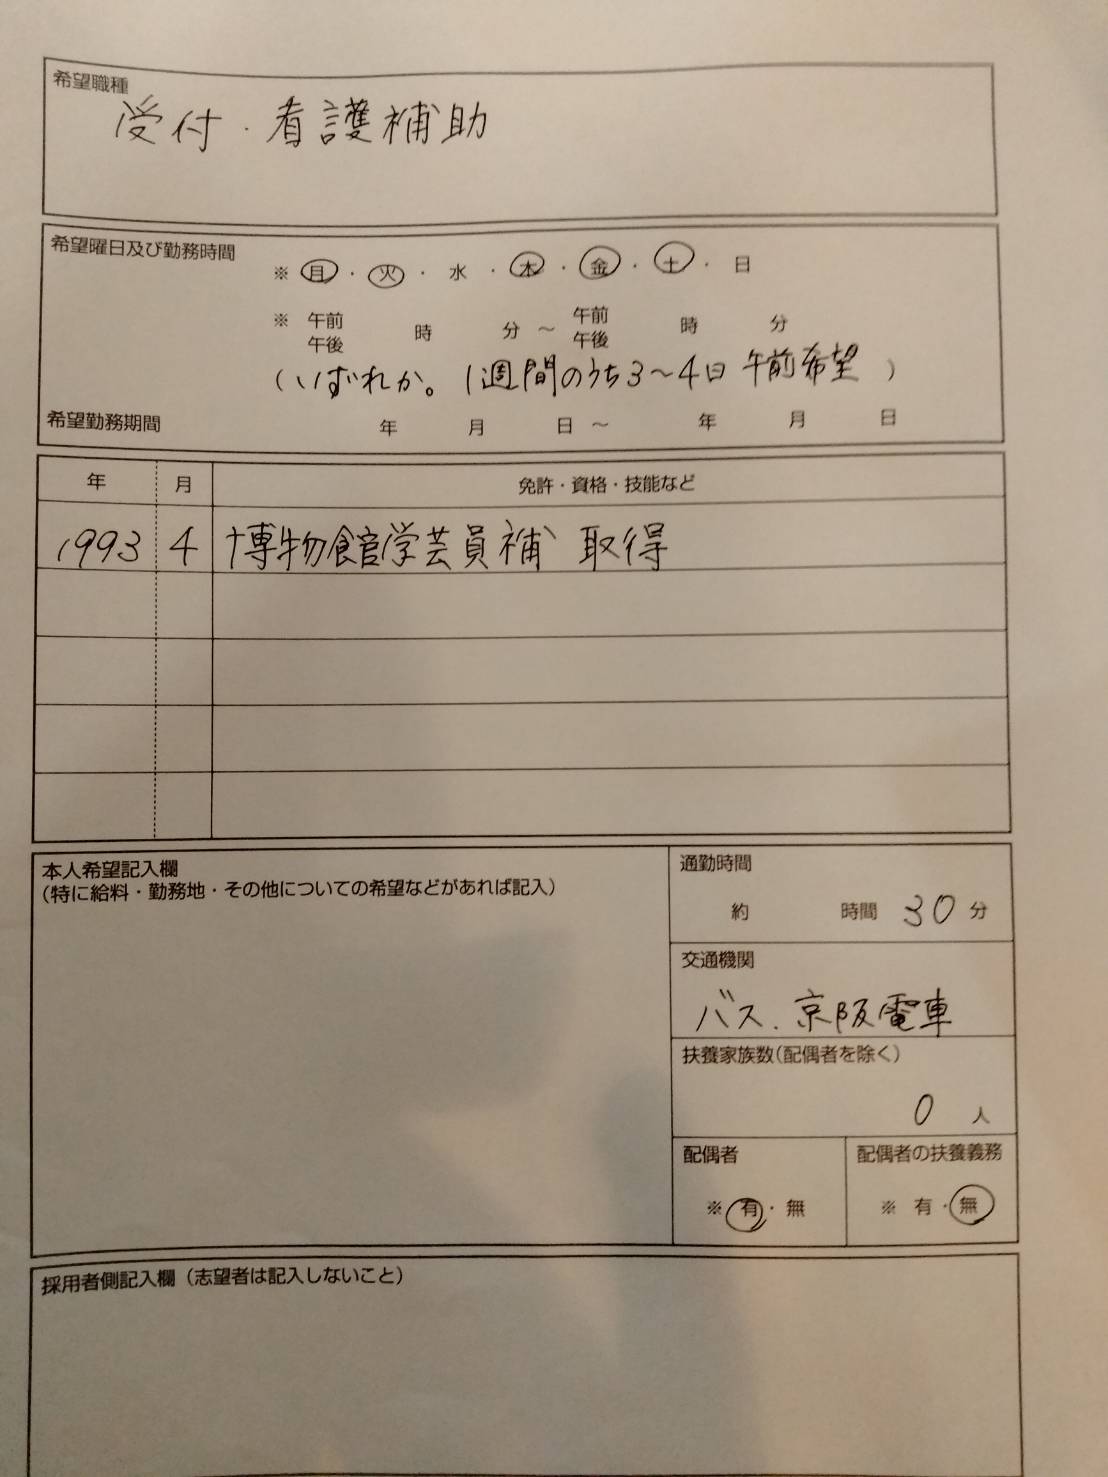 希望職種
受付・看護補助
希望曜日及び勤務時間
※ 月・火・水・木・金・土・日
※ 午前 時 分 ~ 午前 時 分
午後 午後
(いずれか。1週間のうち3~4日 午前希望 )
希望勤務期間 年 月 日 ~ 年 月 日
年 月 免許・資格・技能など
1993 4 博物館学芸員補 取得
本人希望記入欄
(特に給料・勤務地・その他についての希望などがあれば記入)
通勤時間
約 時間 30 分
交通機関
バス.京阪電車
扶養家族数(配偶者を除く)
0 人
配偶者
※ 有・無
配偶者の扶養義務
※ 有・無
採用者側記入欄(志望者は記入しないこと)